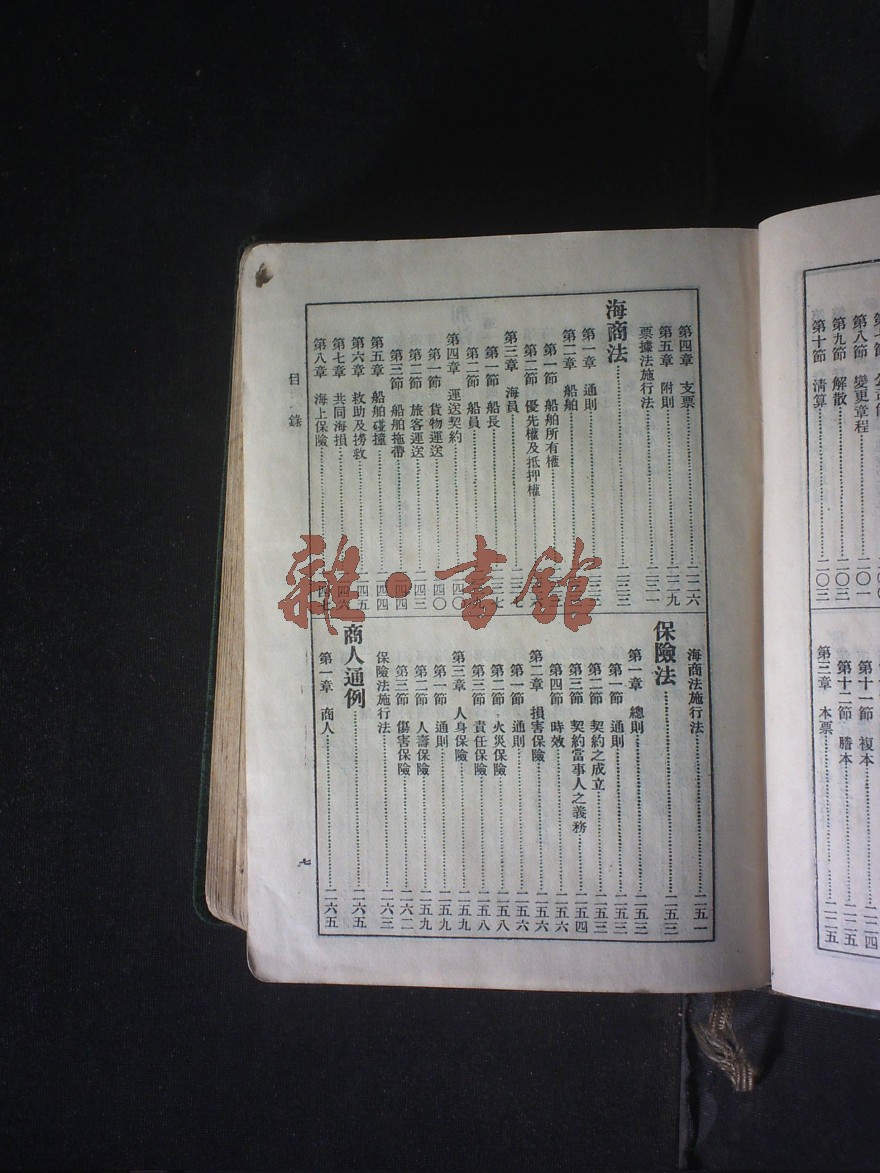 第八節 變更章程…二〇一
第九節 解散…二〇三
第十節 清算…二〇三
第十一節 複本
第十二節 謄本…二二五
第三章 本票…二二五
第四章 支票…二二六
第五章 附則…二二九
票據法施行法…二三一
海商法…二三三
第一章 通則
第二章 船舶
第一節 船舶所有權
第二節 優先權及抵押權
第三章 海員
第一節 船長
第二節 船員
第四章 運送契約
第一節 貨物運送…二四〇
第二節 旅客運送…二四三
第三節 船舶拖帶…二四四
第五章 船舶碰撞…二四四
第六章 救助及撈救…二四五
第七章 共同海損…二四六
第八章 海上保險…二四七
海商法施行法…二五一
保險法…二五三
第一章 總則…二五三
第一節 通則…二五三
第二節 契約之成立…二五三
第三節 契約當事人之義務…二五四
第四節 時效…二五六
第二章 損害保險…二五六
第一節 通則…二五六
第二節 火災保險…二五八
第三節 責任保險…二五八
第三章 人身保險…二五九
第一節 通則…二五九
第二節 人壽保險…二五九
第三節 傷害保險…二六二
保險法施行法…二六三
商人通例…二六五
第一章 商人…二六五
目錄
七
雜·書館